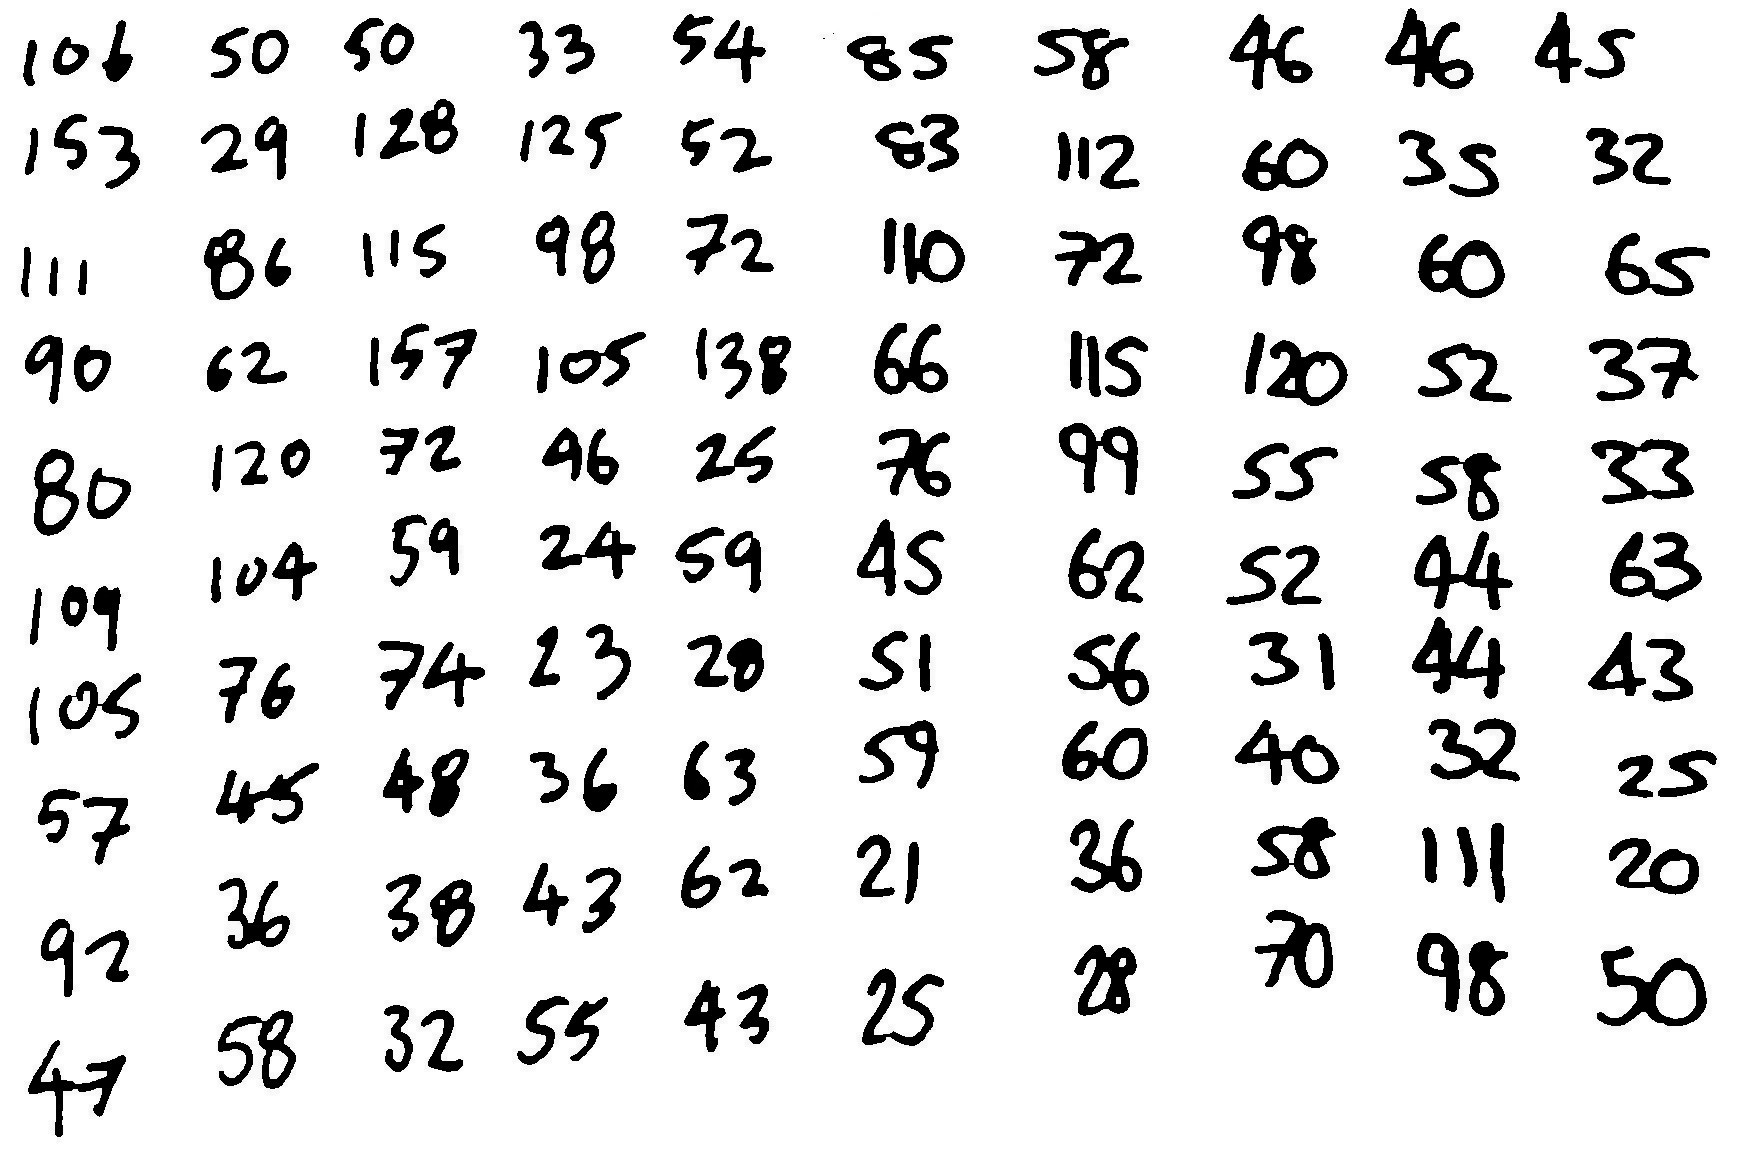 106 50 50 33 54 85 58 46 46 45
153 29 128 125 52 83 112 60 35 32
111 86 115 98 72 110 72 98 60 65
90 62 157 105 138 66 115 120 52 37
80 120 72 46 25 76 99 55 58 33
109 104 59 24 59 45 62 52 44 63
105 76 74 23 28 51 56 31 44 43
57 45 48 36 63 59 60 40 32 25
92 36 38 43 62 21 36 58 111 20
47 58 32 55 43 25 28 70 98 50